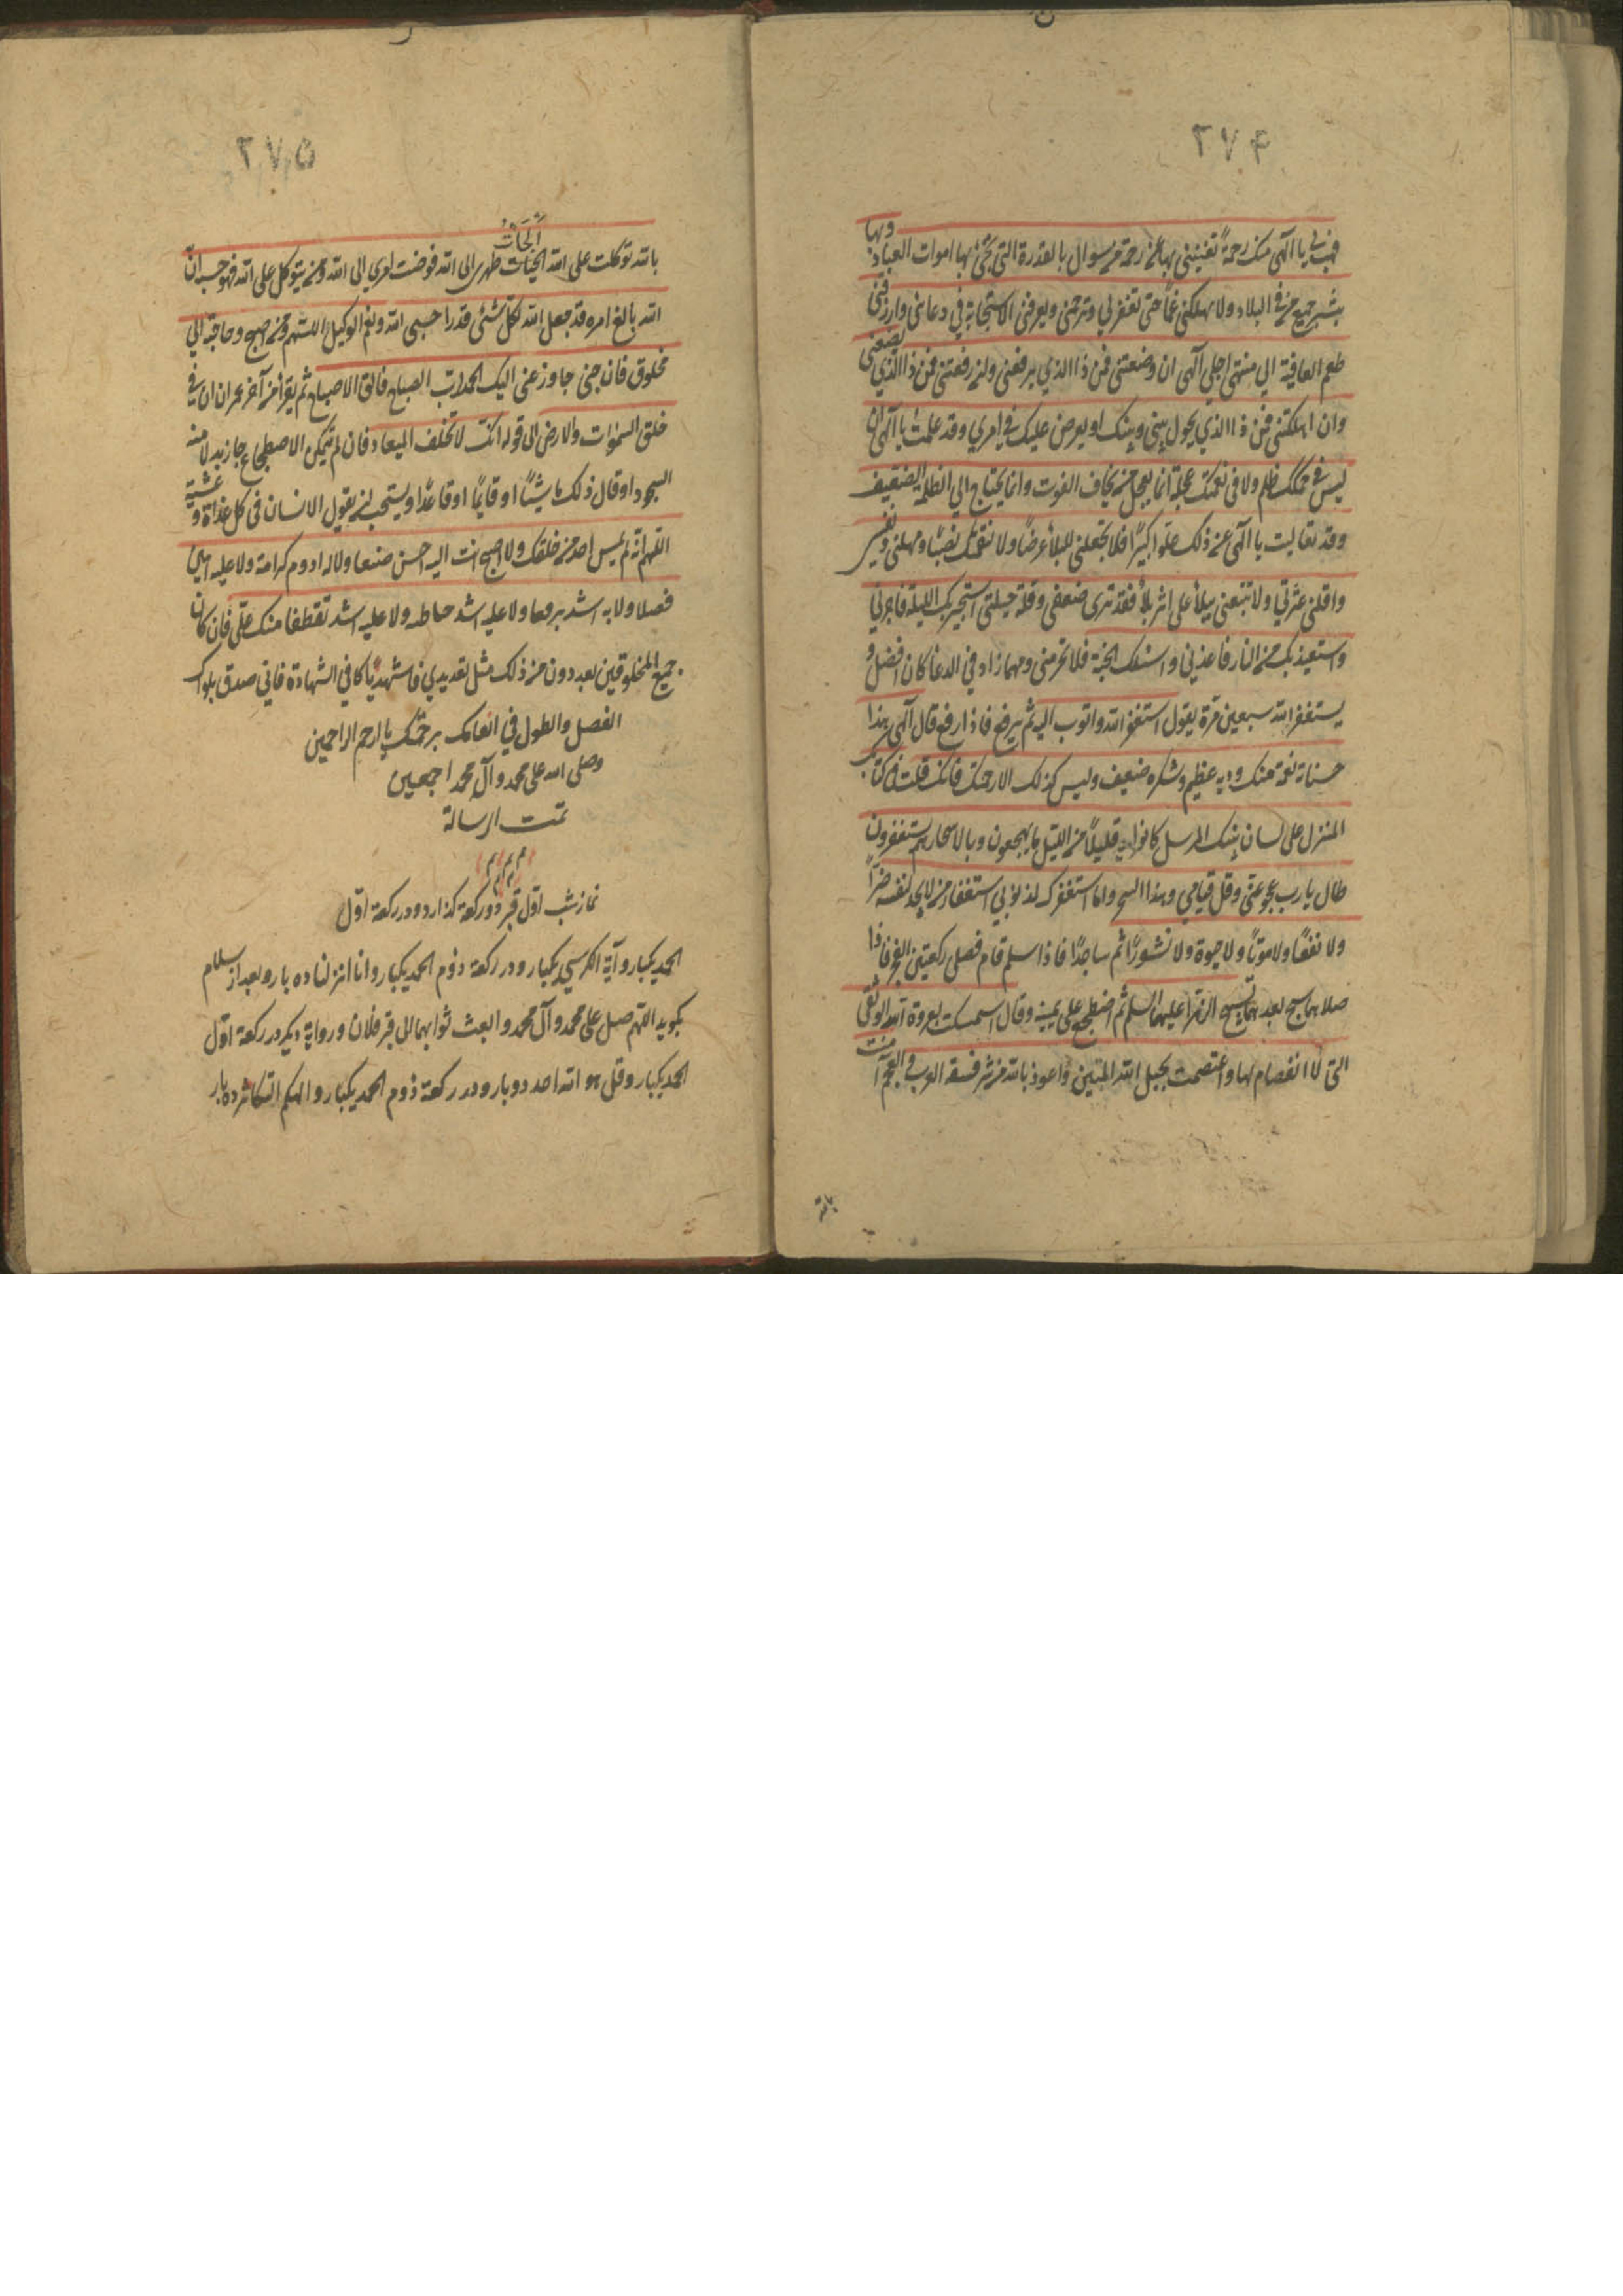 ۲۷۴
فهب لي يا الهي منك رحمة تغنيني بها عن رحمة من سواك بالقدرة التي تحيي بها اموات العباد وبها
ينشر جميع من في البلاد ولا تهلكني غما حتى تغفر لي وترحمني ويعرفني الاستجابة في دعائي وارزقني
طعم العافية الي منتهى اجلي آلهي ان وضعتني فمن ذا الذي يرفعني وان رفعتني فمن ذا الذي يضعني
وان اهلكتني فمن ذا الذي يحول بيني وبينك او يعرض عليك في امري وقد علمت يا آلهي ان
ليس في حكمك ظلم ولا في نقمتك عجلة انما يعجل من يخاف الفوت وانما يحتاج الي الظلم الضعيف
وقد تعاليت يا آلهي عن ذلك علوا كبيرا فلا تجعلني للبلاء غرضا ولا لنقمتك نصبا ومهلني ونفسي
واقلني عثرتي ولا تتبعني ببلاء على اثر بلاء فقد ترى ضعفي وقلة حيلتي استجير بك الليلة فاجرني
واستعيذ بك من النار فاعذني واسئلك الجنة فلا تحرمني ومهما زاد في الدعا كان افضل و
يستغفر الله سبعين مرة يقول استغفر الله واتوب اليه ثم يرفع فاذا رفع قال آلهي هذا
حسناته نعمة منك وذنبه عظيم وشكره ضعيف وليس كذلك الا رحمتك فانك قلت في كتابك
المنزل على لسان نبيك المرسل كانوا قليلا من الليل ما يهجعون وبالاسحارهم يستغفرون
طال يا رب هجوعي وقل قيامي وهذا السحر وانا استغفرك لذنوبي استغفار من لا يجد لنفسه ضرا
ولا نفعا ولا موتا ولا حيوة ولا نشورا ثم ساجدا فاذا سلم قام فصلى ركعتين الفجر فاذا
صلاهما سبح بعدهما تسبيح الزهرا عليها السلم ثم اضطجع على يمينه وقال استمسكت بعروة الله الوثقى
التي لا انفصام لها واعتصمت بحبل الله المتين واعوذ بالله من شر فسقة العرب والعجم آمنت
بالله
۲۷۵
بالله توكلت على الله الجات ظهري الى الله فوضت امري الى الله ومن يتوكل على الله فهو حسبه ان
الله بالغ امره قد جعل الله لكل شئ قدرا حسبي الله ونعم الوكيل اللهم ومن اصبح وحاجته الي
مخلوق فان حاجتي اليك الحمد لرب الصباح فالق الاصباح ثم يقرأ من آخر عمران ان في
خلق السموات والارض الى قوله انك لا تخلف الميعاد فان لم تمكن الاضطجاع جاز بدلا منه
السجود او قال ذلك ماشيا او قايما او قاعدا ويستحب ان يقول الانسان في كل غداة وعشية
اللهم انه لم يمس احد من خلقك ولا اصبح انت اليه احسن صنعا ولا له ادوم كرامة ولا عليه ابين
فضلا ولا به اشد ترفعا ولا عليه اشد حياطه ولا عليه اشد تعطفا منك علي فان كان
جميع المخلوقين يعددون من ذلك مثل تعديدي فاشهد يا كافي الشهادة فاني
الفضل والطول في انعامك برحمتك يا ارحم الراحمين
وصلى الله على محمد وآل محمد اجمعين
تمت الرسالة
نماز شب اول قبر دو ركعة كذارد ودر ركعة اول
الحمد يكبار وآية الكرسي يكبار ودر ركعة دوم الحمد يكبار وانا انزلناه ده بار وبعد از سلام
بكويد اللهم صل على محمد وآل محمد وابعث ثوابهما الى قبر فلان ورواية ديكر در ركعة اول
الحمد يكبار وقل هو الله احد دو بار ودر ركعة دوم الحمد يكبار والهيكم التكاثر ده بار